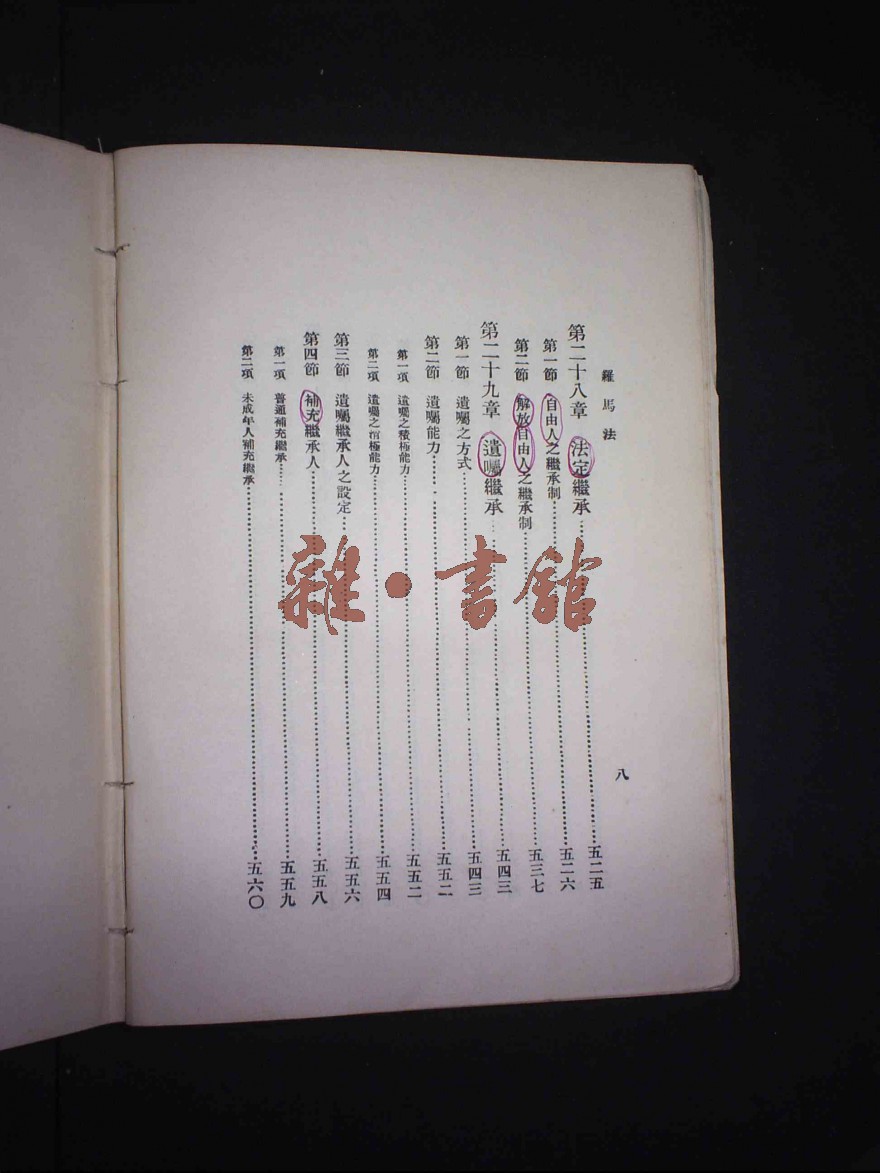 羅馬法
八
第二十八章 法定繼承……五二五
第一節 自由人之繼承制……五二六
第二節 解放自由人之繼承制……五三七
第二十九章 遺囑繼承……五四三
第一節 遺囑之方式……五四三
第二節 遺囑能力……五五二
第一項 遺囑之積極能力……五五二
第二項 遺囑之消極能力……五五四
第三節 遺囑繼承人之設定……五五六
第四節 補充繼承人……五五八
第一項 普通補充繼承……五五九
第二項 未成年人補充繼承……五六〇
雜·書館